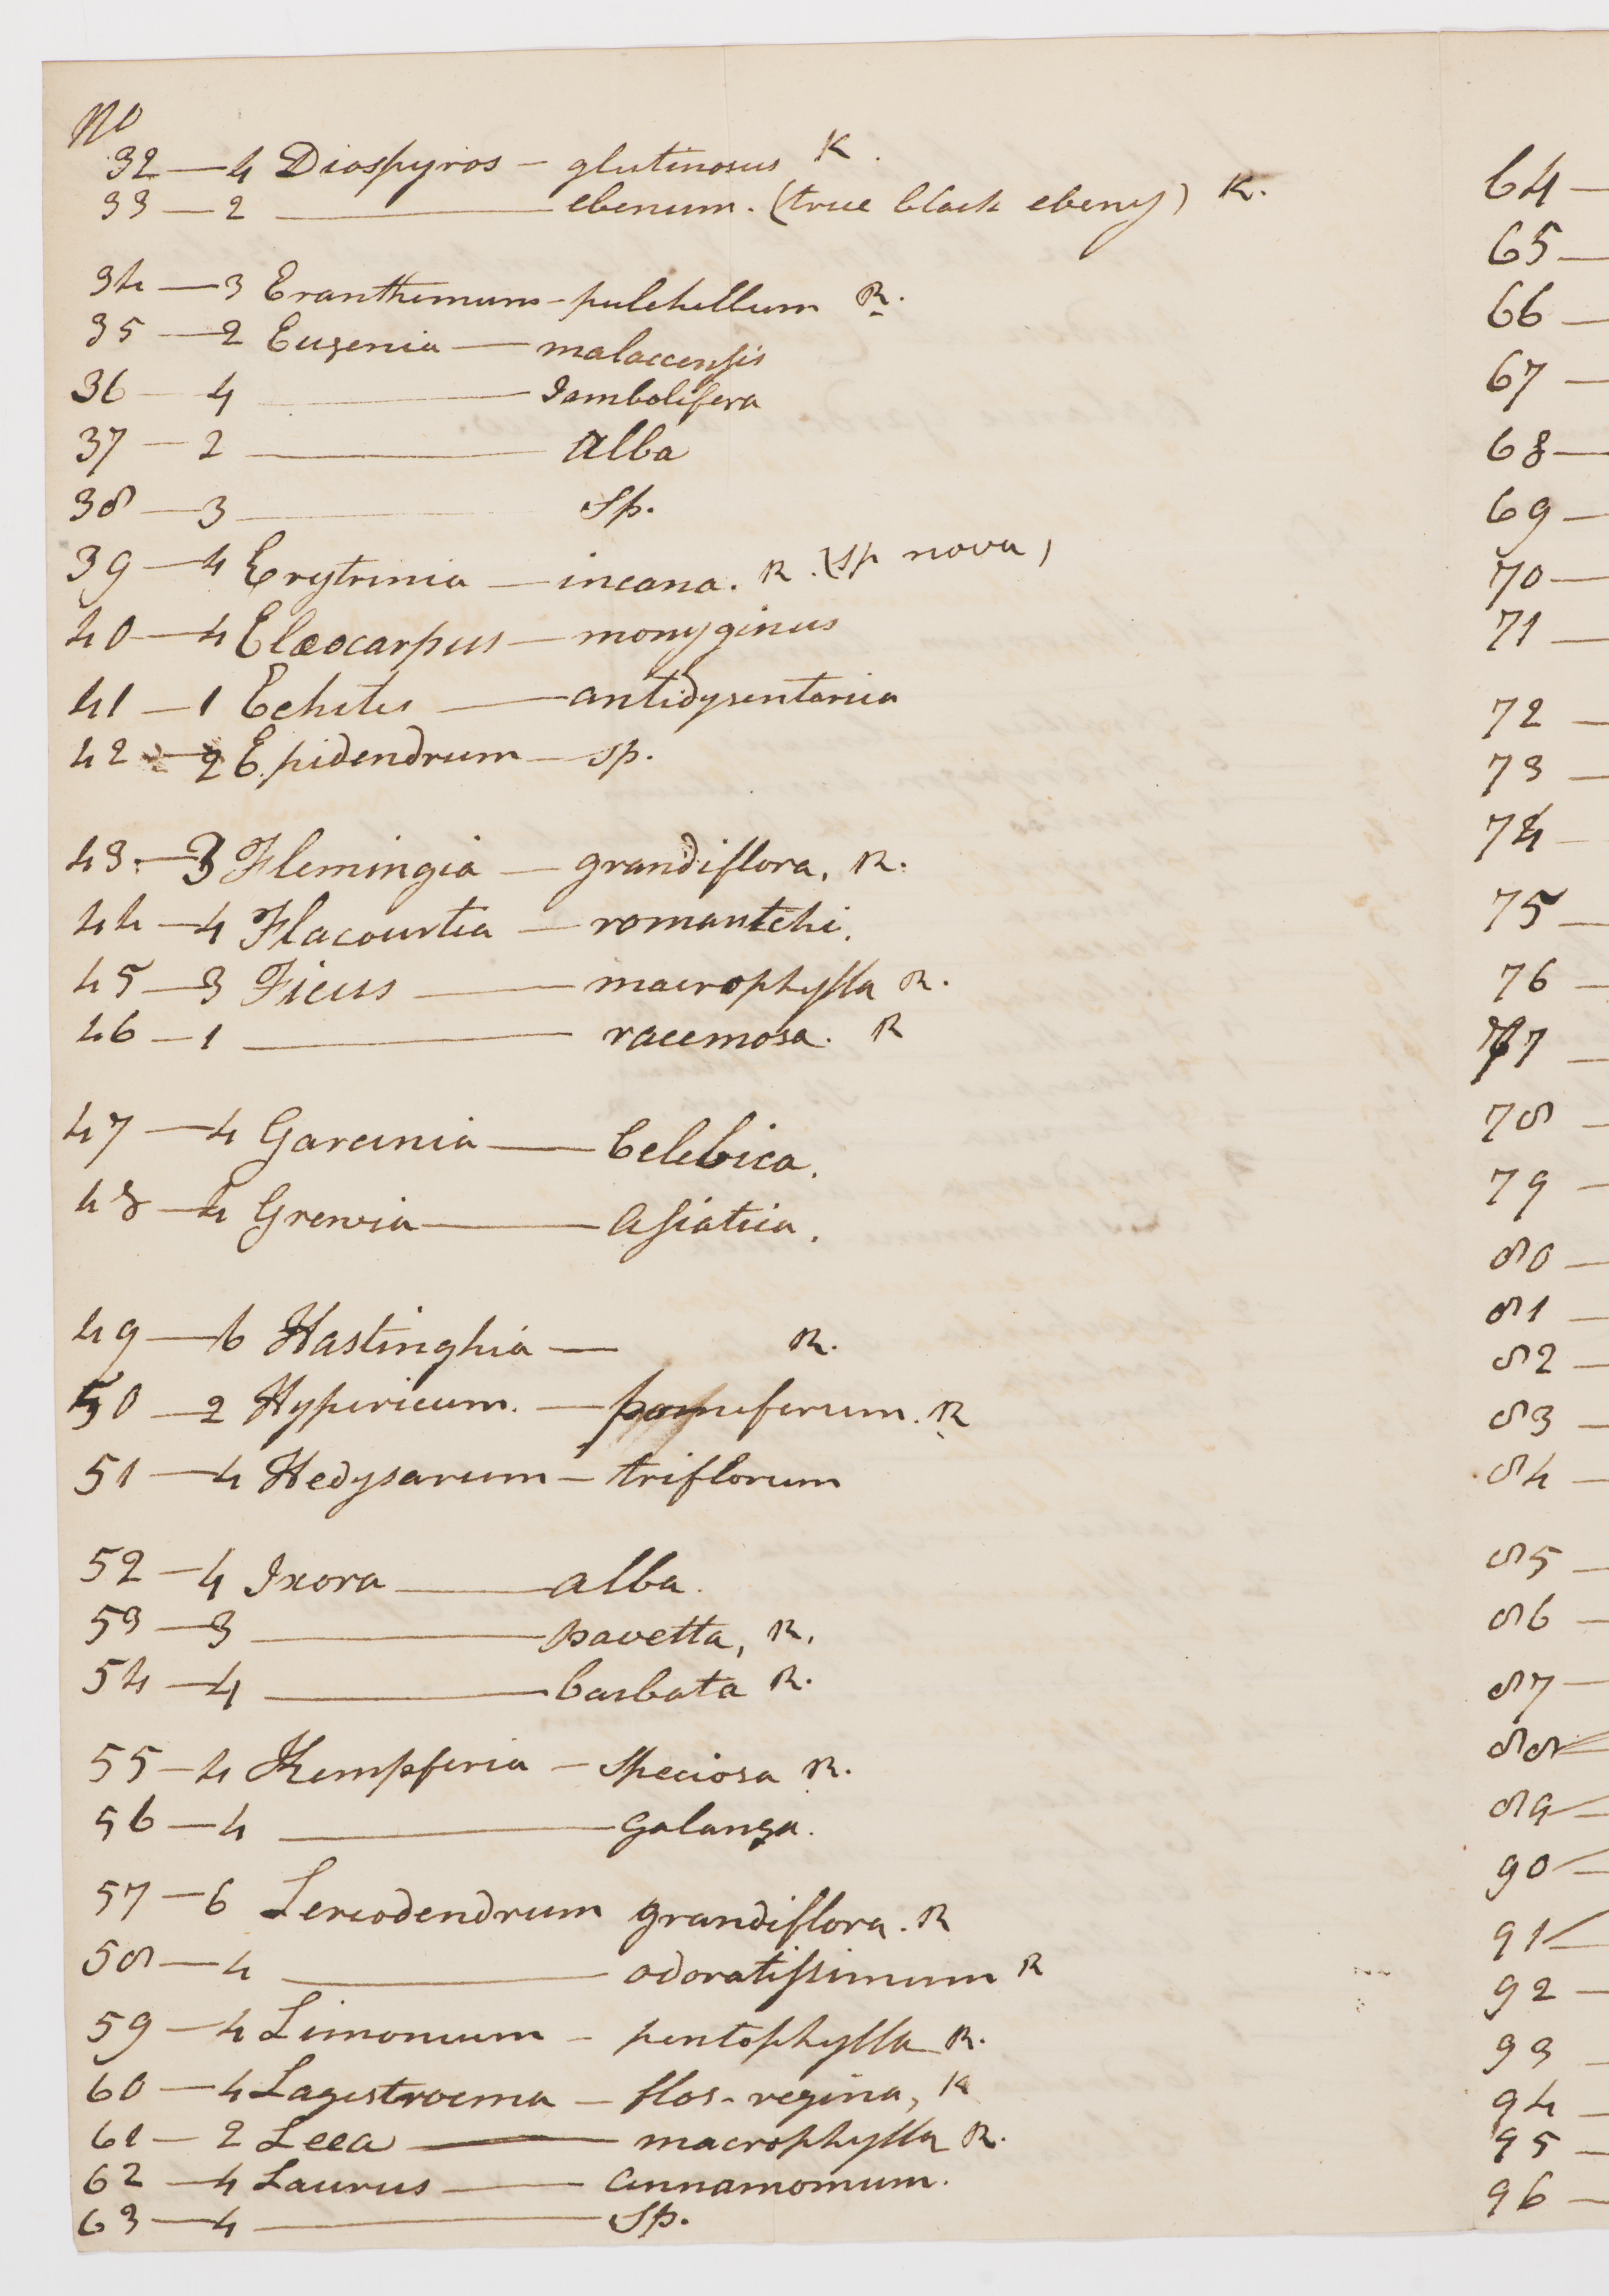 No
32 — 4 Diospyros — glutinosus K.
33 — 2 — ebenum. (true black ebeny) K.
34 — 3 Eranthemum — pulchellum R.
35 — 2 Eugenia — malaccensis
36 — 4 — Jambolifera
37 — 2 — alba
38 — 3 — Sp.
39 — 4 Erytrinia — incana. R. (sp nova)
40 — 4 Elæocarpus — monyginus
41 — 1 Echites — antidysentarica
42 — 2 Epidendrum — sp.
43. — 3 Flemingia — grandiflora. R.
44 — 4 Flacourtia — romantchi.
45 — 3 Ficus — macrophylla R.
46 — 1 — racemosa. R
47 — 4 Garcinia — Celebica.
48 — 4 Grewia — Asiatica.
49 — 6 Hastinghia — R.
50 — 2 Hypericum. — pomiferum. R
51 — 4 Hedysarum — triflorum
52 — 4 Ixora — alba.
53 — 3 — pavetta, R.
54 — 4 — barbata R.
55 — 4 Kempferia — Speciosa R.
56 — 4 — Galanga.
57 — 6 Leriodendrum grandiflora. R
58 — 4 — odoratissimum R
59 — 4 Limonium — pentophylla R.
60 — 4 Lagestroema — flos-regina, K
61 — 2 Leea — macrophylla R.
62 — 4 Laurus — Cinnamomum.
63 — 4 — Sp.
64 —
65 —
66 —
67 —
68 —
69 —
70 —
71 —
72 —
73 —
74 —
75 —
76 —
77 —
78 —
79 —
80 —
81 —
82 —
83 —
84 —
85 —
86 —
87 —
88 —
89 —
90 —
91 —
92 —
93 —
94 —
95 —
96 —